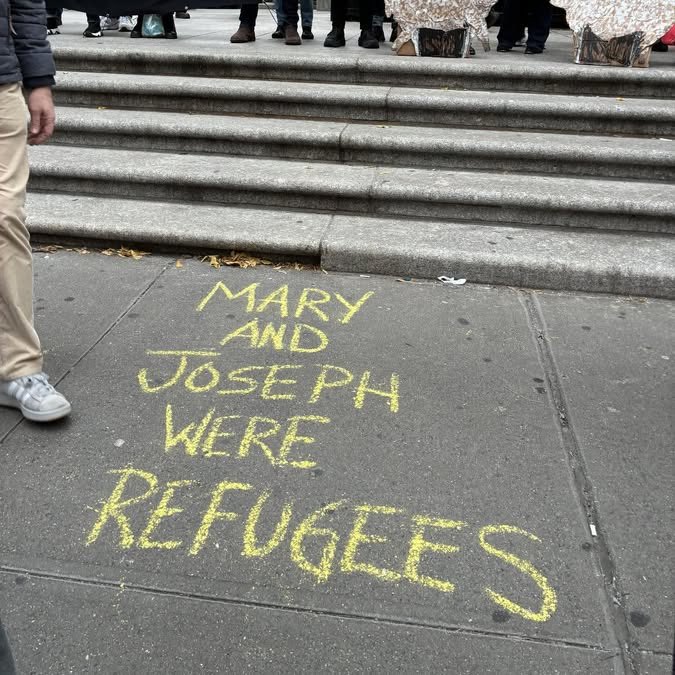 MARY
AND
JOSEPH
WERE
REFUGEES